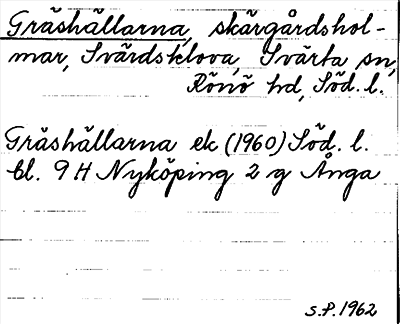 Gräshällarna, skärgårdshol-
mar, Svärdsklova, Svärta sn,
Rönö hd, Söd. l.
Gräshällarna ek (1960) Söd. l.
bl. 9 H Nyköping 2 g Ånga
S.P. 1962